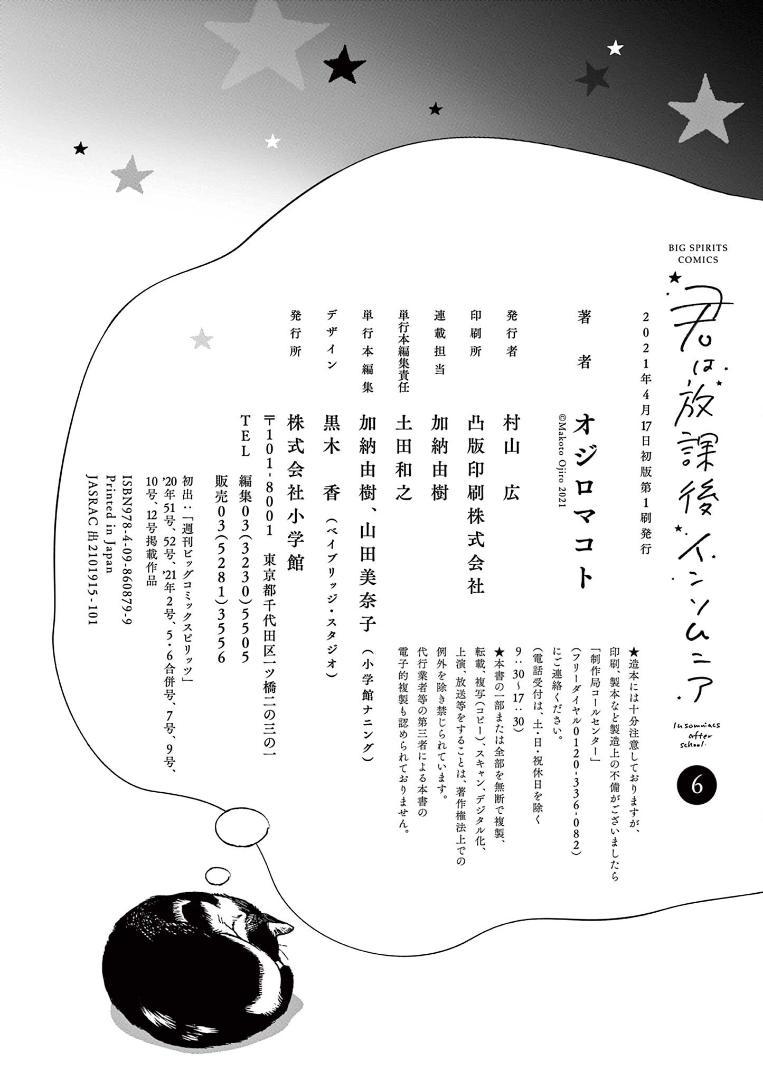 BIG SPIRITS
COMICS
君は放課後インソムニア
Insomniacs
after
school.
6
2021年4月17日初版第1刷発行
著者 オジロマコト
©Makoto Ojiro 2021
発行者 村山 広
印刷所 凸版印刷株式会社
連載担当 加納由樹
単行本編集責任 土田和之
単行本編集 加納由樹、山田美奈子(小学館ナニング)
デザイン 黒木 香(ベイブリッジ・スタジオ)
発行所 株式会社小学館
〒101-8001 東京都千代田区一ツ橋二の三の一
TEL 編集03(3230)5505
販売03(5281)3556
★造本には十分注意しておりますが、
印刷、製本など製造上の不備がございましたら
「制作局コールセンター」
(フリーダイヤル0120-336-082)
にご連絡ください。
(電話受付は、土・日・祝休日を除く
9:30〜17:30)
★本書の一部または全部を無断で複製、
転載、複写(コピー)、スキャン、デジタル化、
上演、放送等をすることは、著作権法上での
例外を除き禁じられています。
代行業者等の第三者による本書の
電子的複製も認められておりません。
初出:「週刊ビッグコミックスピリッツ」
'20年51号、52号、'21年2号、5・6合併号、7号、9号、
10号、12号掲載作品
ISBN978-4-09-860879-9
Printed in Japan
JASRAC 出 2101915-101